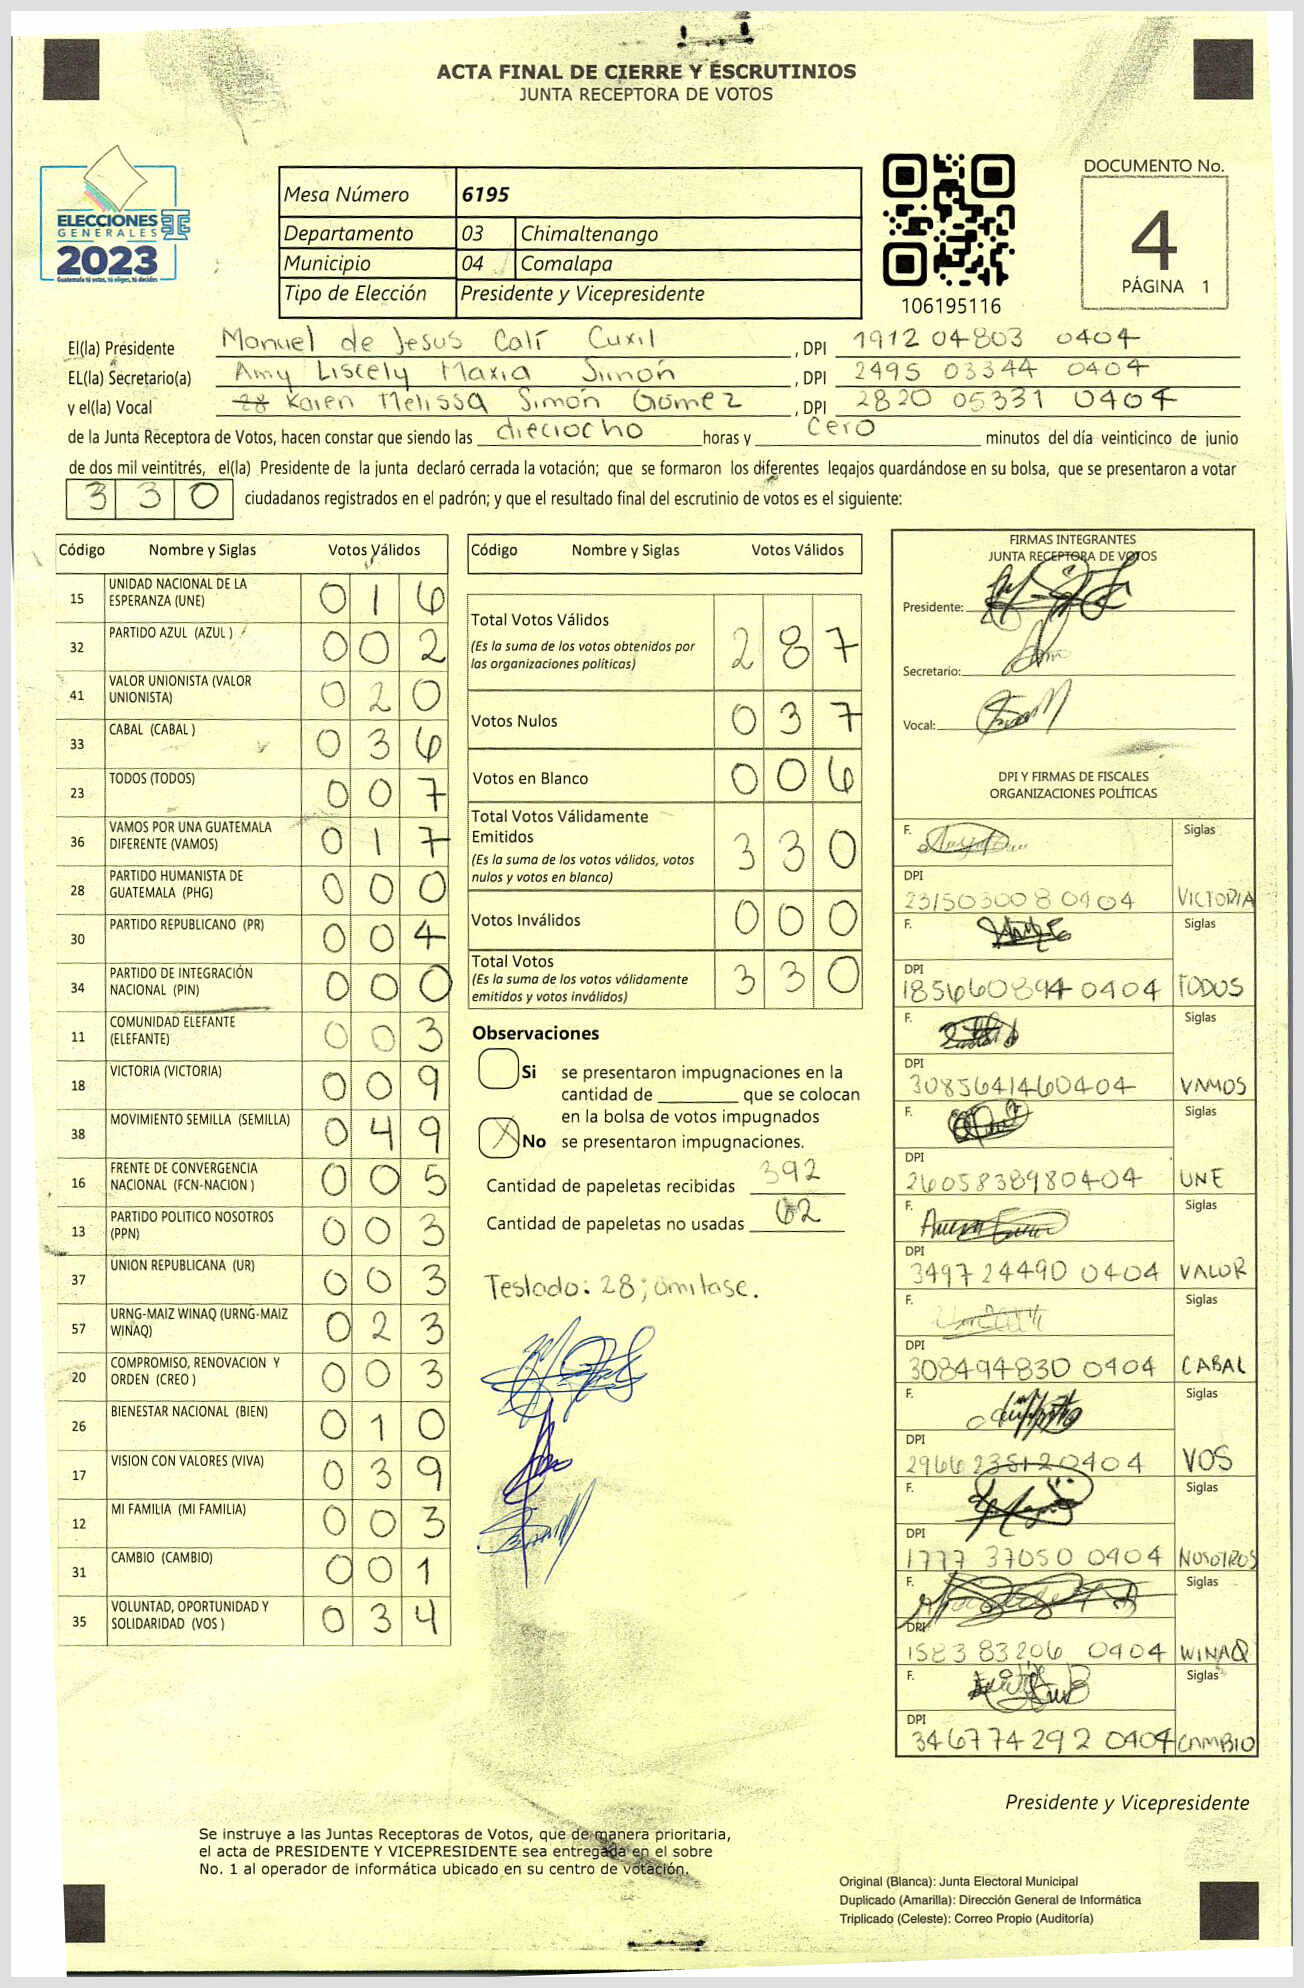 ACTA FINAL DE CIERRE Y ESCRUTINIOS
JUNTA RECEPTORA DE VOTOS
ELECCIONES
GENERALES
2023
Guatemala tú votas, tú eliges, tú decides
Mesa Número 6195
Departamento 03 Chimaltenango
Municipio 04 Comalapa
Tipo de Elección Presidente y Vicepresidente
106195116
DOCUMENTO No.
4
PÁGINA 1
El(la) Presidente Manuel de Jesus Calí Cuxil , DPI 1912 04803 0404
EL(la) Secretario(a) Amy Liscely Maxia Simón , DPI 2495 03344 0404
y el(la) Vocal 28 Karen Melissa Simón Gómez , DPI 2820 05331 0404
de la Junta Receptora de Votos, hacen constar que siendo las dieciocho horas y cero minutos del día veinticinco de junio
de dos mil veintitrés, el(la) Presidente de la junta declaró cerrada la votación; que se formaron los diferentes legajos quardándose en su bolsa, que se presentaron a votar
3 3 0 ciudadanos registrados en el padrón; y que el resultado final del escrutinio de votos es el siguiente:
Código Nombre y Siglas Votos Válidos
15 UNIDAD NACIONAL DE LA ESPERANZA (UNE) 0 1 6
32 PARTIDO AZUL (AZUL ) 0 0 2
41 VALOR UNIONISTA (VALOR UNIONISTA) 0 2 0
33 CABAL (CABAL ) 0 3 6
23 TODOS (TODOS) 0 0 7
36 VAMOS POR UNA GUATEMALA DIFERENTE (VAMOS) 0 1 7
28 PARTIDO HUMANISTA DE GUATEMALA (PHG) 0 0 0
30 PARTIDO REPUBLICANO (PR) 0 0 4
34 PARTIDO DE INTEGRACIÓN NACIONAL (PIN) 0 0 0
11 COMUNIDAD ELEFANTE (ELEFANTE) 0 0 3
18 VICTORIA (VICTORIA) 0 0 9
38 MOVIMIENTO SEMILLA (SEMILLA) 0 4 9
16 FRENTE DE CONVERGENCIA NACIONAL (FCN-NACION ) 0 0 5
13 PARTIDO POLITICO NOSOTROS (PPN) 0 0 3
37 UNION REPUBLICANA (UR) 0 0 3
57 URNG-MAIZ WINAQ (URNG-MAIZ WINAQ) 0 2 3
20 COMPROMISO, RENOVACION Y ORDEN (CREO ) 0 0 3
26 BIENESTAR NACIONAL (BIEN) 0 1 0
17 VISION CON VALORES (VIVA) 0 3 9
12 MI FAMILIA (MI FAMILIA) 0 0 3
31 CAMBIO (CAMBIO) 0 0 1
35 VOLUNTAD, OPORTUNIDAD Y SOLIDARIDAD (VOS ) 0 3 4
Código Nombre y Siglas Votos Válidos
Total Votos Válidos 2 8 7
(Es la suma de los votos obtenidos por
las organizaciones políticas)
Votos Nulos 0 3 7
Votos en Blanco 0 0 6
Total Votos Válidamente
Emitidos 3 3 0
(Es la suma de los votos válidos, votos
nulos y votos en blanco)
Votos Inválidos 0 0 0
Total Votos 3 3 0
(Es la suma de los votos válidamente
emitidos y votos inválidos)
Observaciones
Si se presentaron impugnaciones en la
cantidad de ________ que se colocan
en la bolsa de votos impugnados
X No se presentaron impugnaciones.
Cantidad de papeletas recibidas 392
Cantidad de papeletas no usadas 62
Testado: 28; omitase.
FIRMAS INTEGRANTES
JUNTA RECEPTORA DE VOTOS
Presidente:
Secretario:
Vocal:
DPI Y FIRMAS DE FISCALES
ORGANIZACIONES POLÍTICAS
F. Siglas
DPI
231503008 0404 VICTORIA
F. Siglas
DPI
185660894 0404 TODOS
F. Siglas
DPI
3085641460404 VAMOS
F. Siglas
DPI
2605838980404 UNE
F. Siglas
DPI
349724490 0404 VALOR
F. Siglas
DPI
308494830 0404 CABAL
F. Siglas
DPI
2966235120404 VOS
F. Siglas
DPI
1777 37050 0404 NOSOTROS
F. Siglas
DPI
1583 83206 0404 WINAQ
F. Siglas
DPI
346774292 0404 CAMBIO
Presidente y Vicepresidente
Se instruye a las Juntas Receptoras de Votos, que de manera prioritaria,
el acta de PRESIDENTE Y VICEPRESIDENTE sea entregada en el sobre
No. 1 al operador de informática ubicado en su centro de votación.
Original (Blanca): Junta Electoral Municipal
Duplicado (Amarilla): Dirección General de Informática
Triplicado (Celeste): Correo Propio (Auditoría)